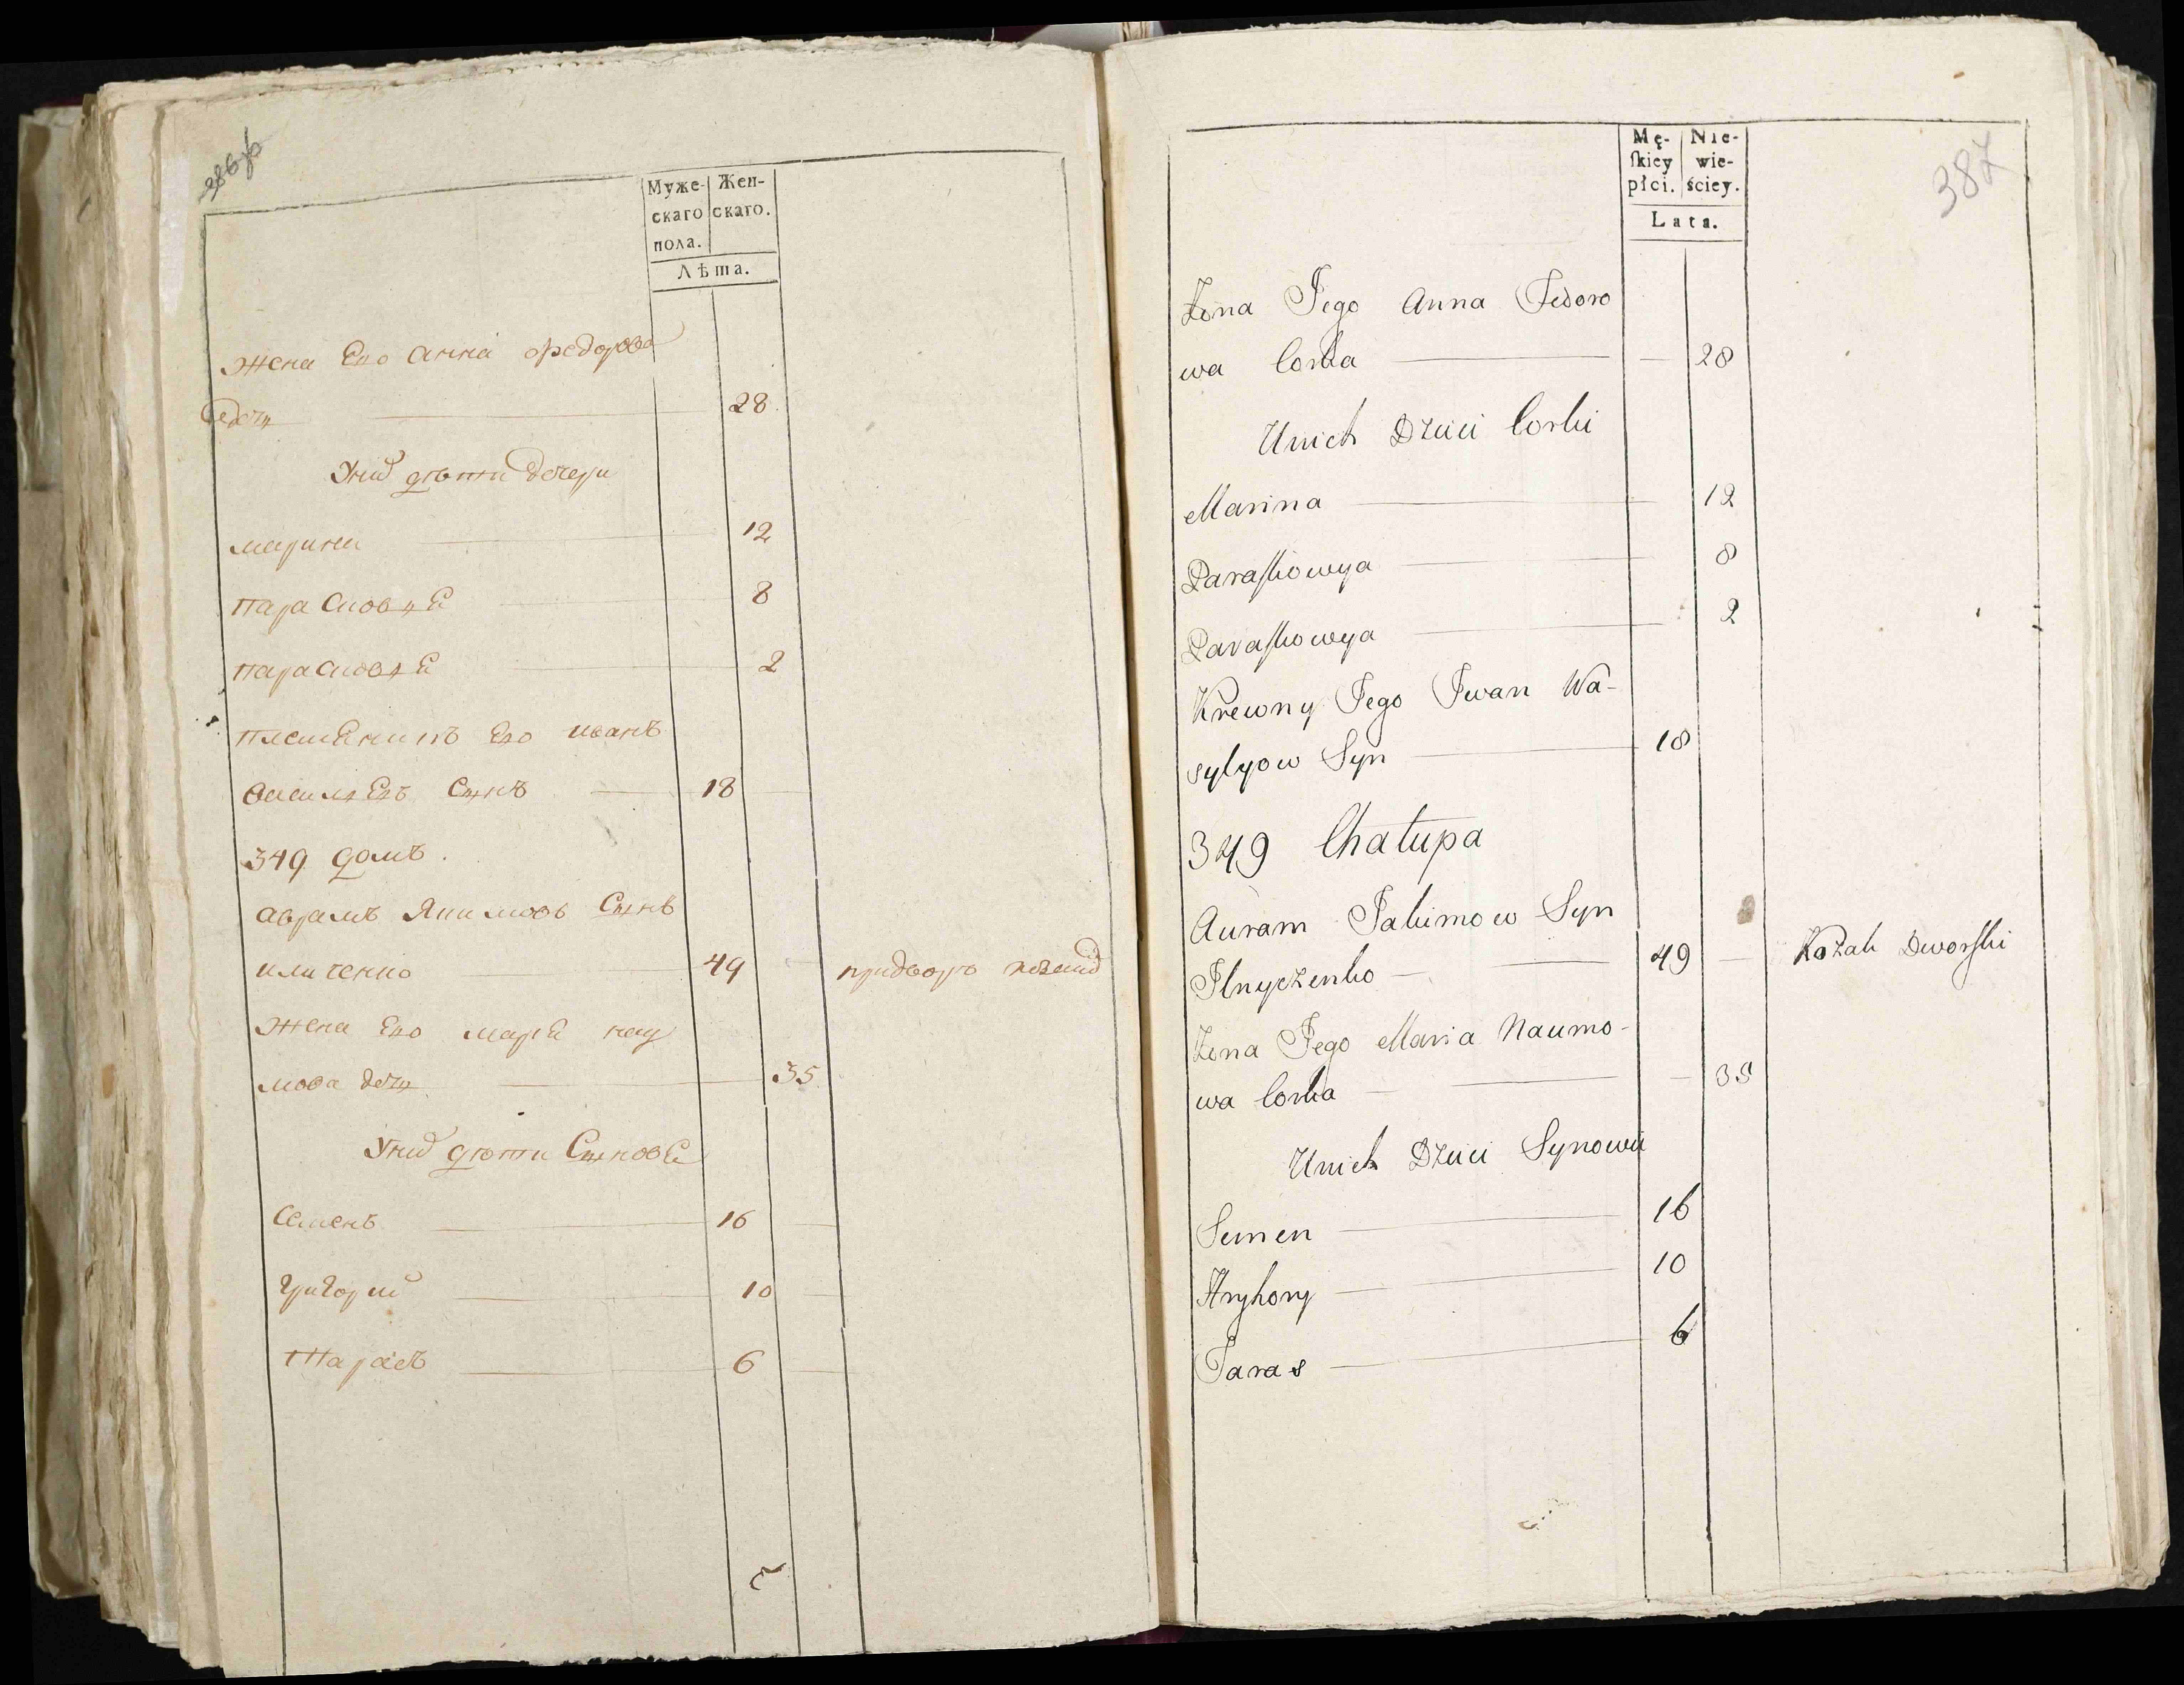 Муже- Жен-
скаго скаго.
пола.
Лѣта.
Жена Его Анна Федорова
дочь 28
У них дѣти дочери
Марина 12
Парасковѣя 8
Парасковѣя 2
Племенникъ Его Иванъ
Василѣевъ Сынъ 18
349 домъ.
Аврамъ Якимовъ Сынъ
49
Жена Его Маря Нау
мова дочь 35
У них дѣти Сыновя
Семенъ 16
Григории 10
Тарасъ 6
387
Mę- Nie-
ſkiey wie-
płci. ściey.
Lata.
Zona Jego Anna Fedoro
wa Corka 28
Unich Dzieci Corki
Marina 12
Paraſkowya 8
Paraſkowya 2
Krewny Jego Iwan Wa-
sylyow Syn 18
349 Chałupa
Auram Jakimow Syn
Ilnyczenko 49 Kozak Dworſki
Zona Jego Maria Naumo-
wa Corka 35
Unich Dzieci Synowie
Semen 16
Hryhory 10
Taras 6